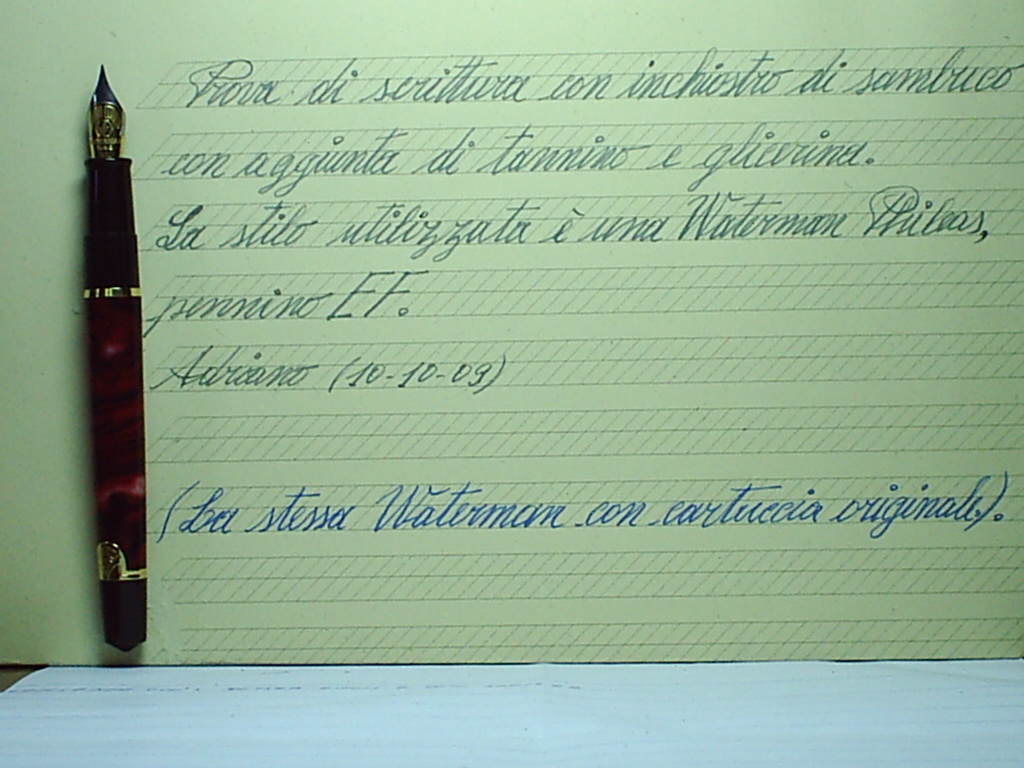 Prova di scrittura con inchiostro di sambuco
con aggiunta di tannino e glicerina.
La stilo utilizzata è una Waterman Phileas,
pennino EF.
Adriano (10-10-09)
(La stessa Waterman con cartuccia originale).